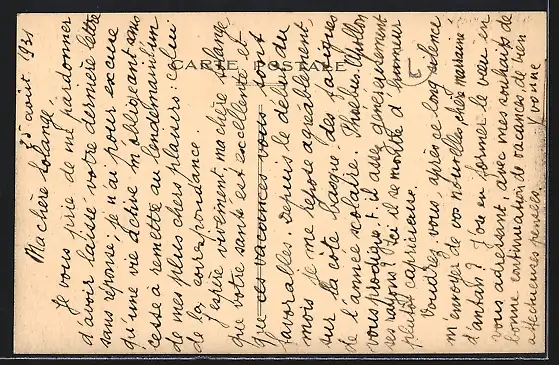 CARTE POSTALE
25 août 1931
Ma chère Solange,
Je vous prie de me pardonner
d'avoir laissé votre dernière lettre
sans réponse, je n'ai pour excuse
qu'une vie active m'obligeant sans
cesse à remettre au lendemain l'un
de mes plus chers plaisirs : celui
de la correspondance.
J'espère vivement, ma chère Solange,
que votre santé est excellente et
que ces vacances vous sont
favorables. Depuis le début du
mois je me repose agréablement,
sur la côte basque, des fatigues
de l'année scolaire. Phoebus-Apollon
vous prodigue-t-il assez généreusement
ses rayons? Ici il se montre d'humeur
plutôt capricieuse.
Voudrez-vous, après ce long silence
m'envoyer de vos nouvelles, chère marraine
d'antan? J'ose en former le vœu en
vous adressant, avec mes souhaits de
bonne continuation de vacances, de bien
affectueuses pensées.
Yvonne